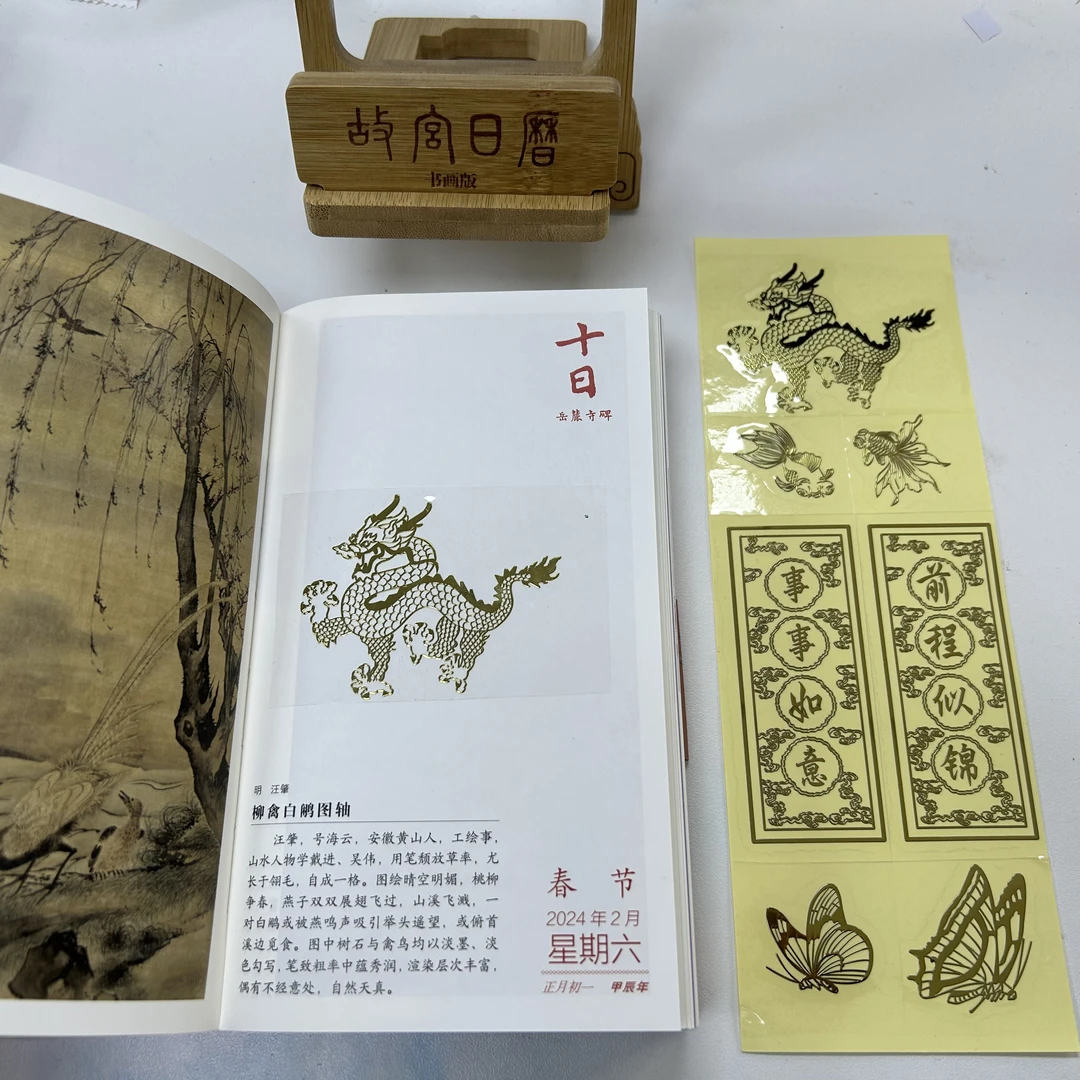 故宫日曆
书画版
十日
岳麓寺碑
明 汪肇
柳禽白鹇图轴
汪肇，号海云，安徽黄山人，工绘事，
山水人物学戴进、吴伟，用笔颓放草率，尤
长于翎毛，自成一格。图绘晴空明媚，桃柳
争春，燕子双双展翅飞过，山溪飞溅，一
对白鹇或被燕鸣声吸引举头遥望，或俯首
溪边觅食。图中树石与禽鸟均以淡墨、淡
色勾写，笔致粗率中蕴秀润，渲染层次丰富，
偶有不经意处，自然天真。
春节
2024年2月
星期六
正月初一 甲辰年
事事如意
前程似锦